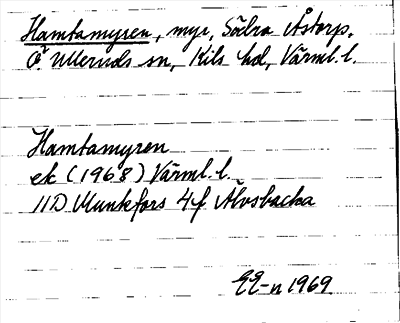 Hamtamyren, myr, Södra Åstorp,
Ö Ulleruds sn, Kils hd, Värml. l.
Hamtamyren
ek (1968) Värml. l.
11D Munkfors 4f Älvsbacka
EE-n 1969